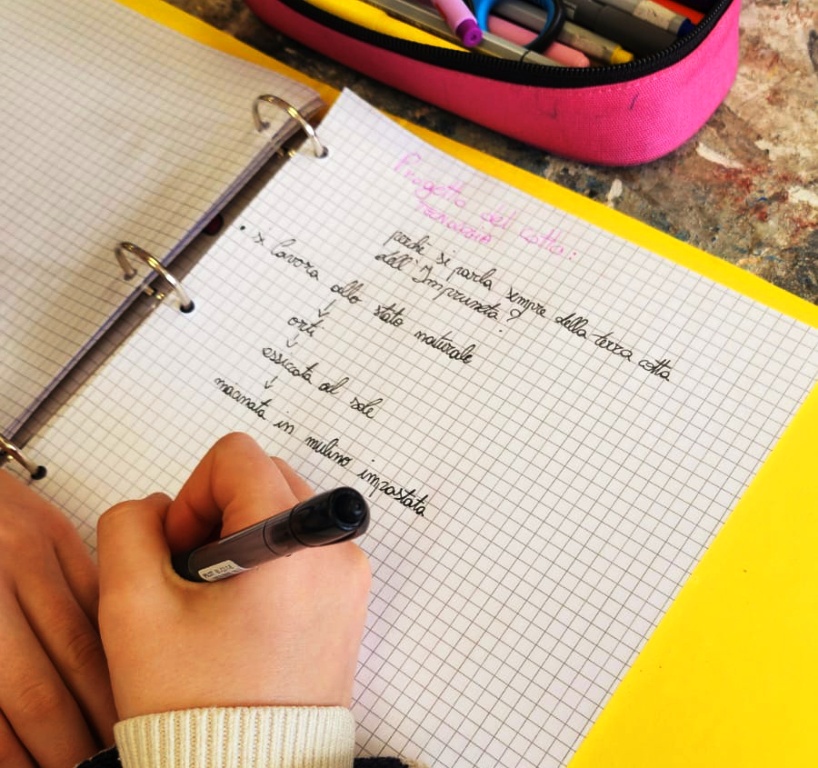 Progetto del cotto:
Tecnologia
perché si parla sempre della terra cotta
dell'Impruneta?
• si lavora allo stato naturale
↓
orti
↓
essiccata al sole
↓
macinata in mulino impastata